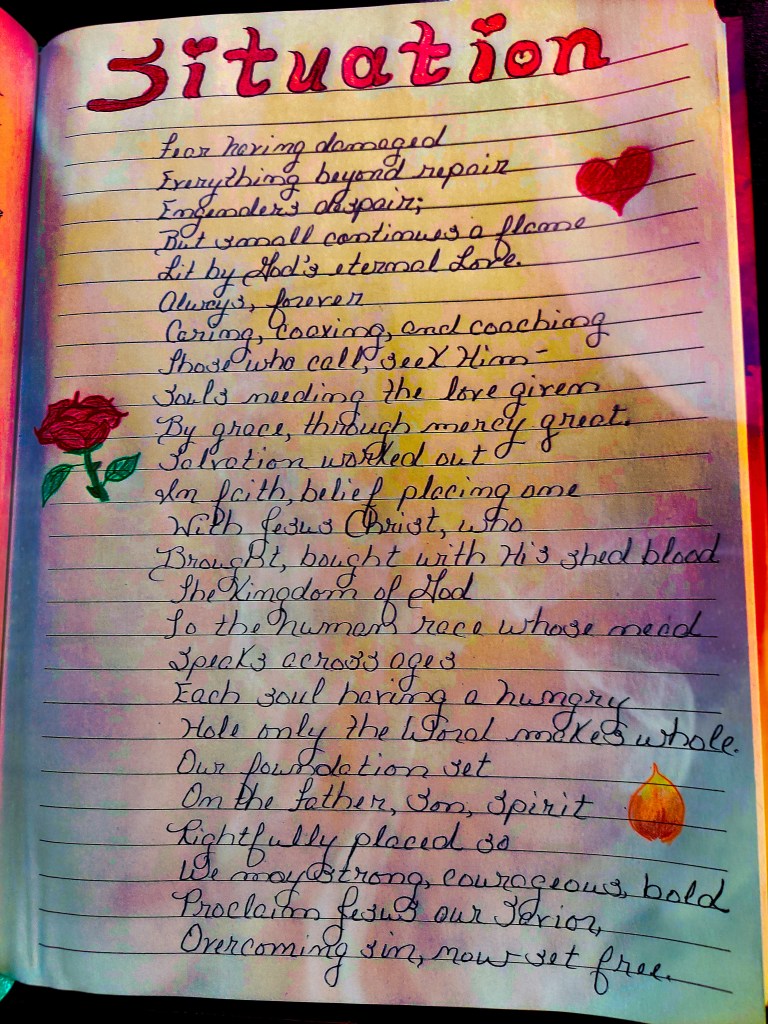 Situation
Fear having damaged
Everything beyond repair
Engenders despair;
But small continues a flame
Lit by God's eternal Love.
Always, forever
Caring, coaxing, and coaching
Those who call, seek Him-
Souls needing the love given
By grace, through mercy great.
Salvation worked out
In faith, belief placing one
With Jesus Christ, who
Brought, bought with His shed blood
The Kingdom of God
To the human race whose need
Speaks across ages
Each soul having a hungry
Hole only the Word makes whole.
Our foundation set
On the Father, Son, Spirit
Rightfully placed so
We may strong, courageous, bold
Proclaim Jesus our Savior,
Overcoming sin, now set free.